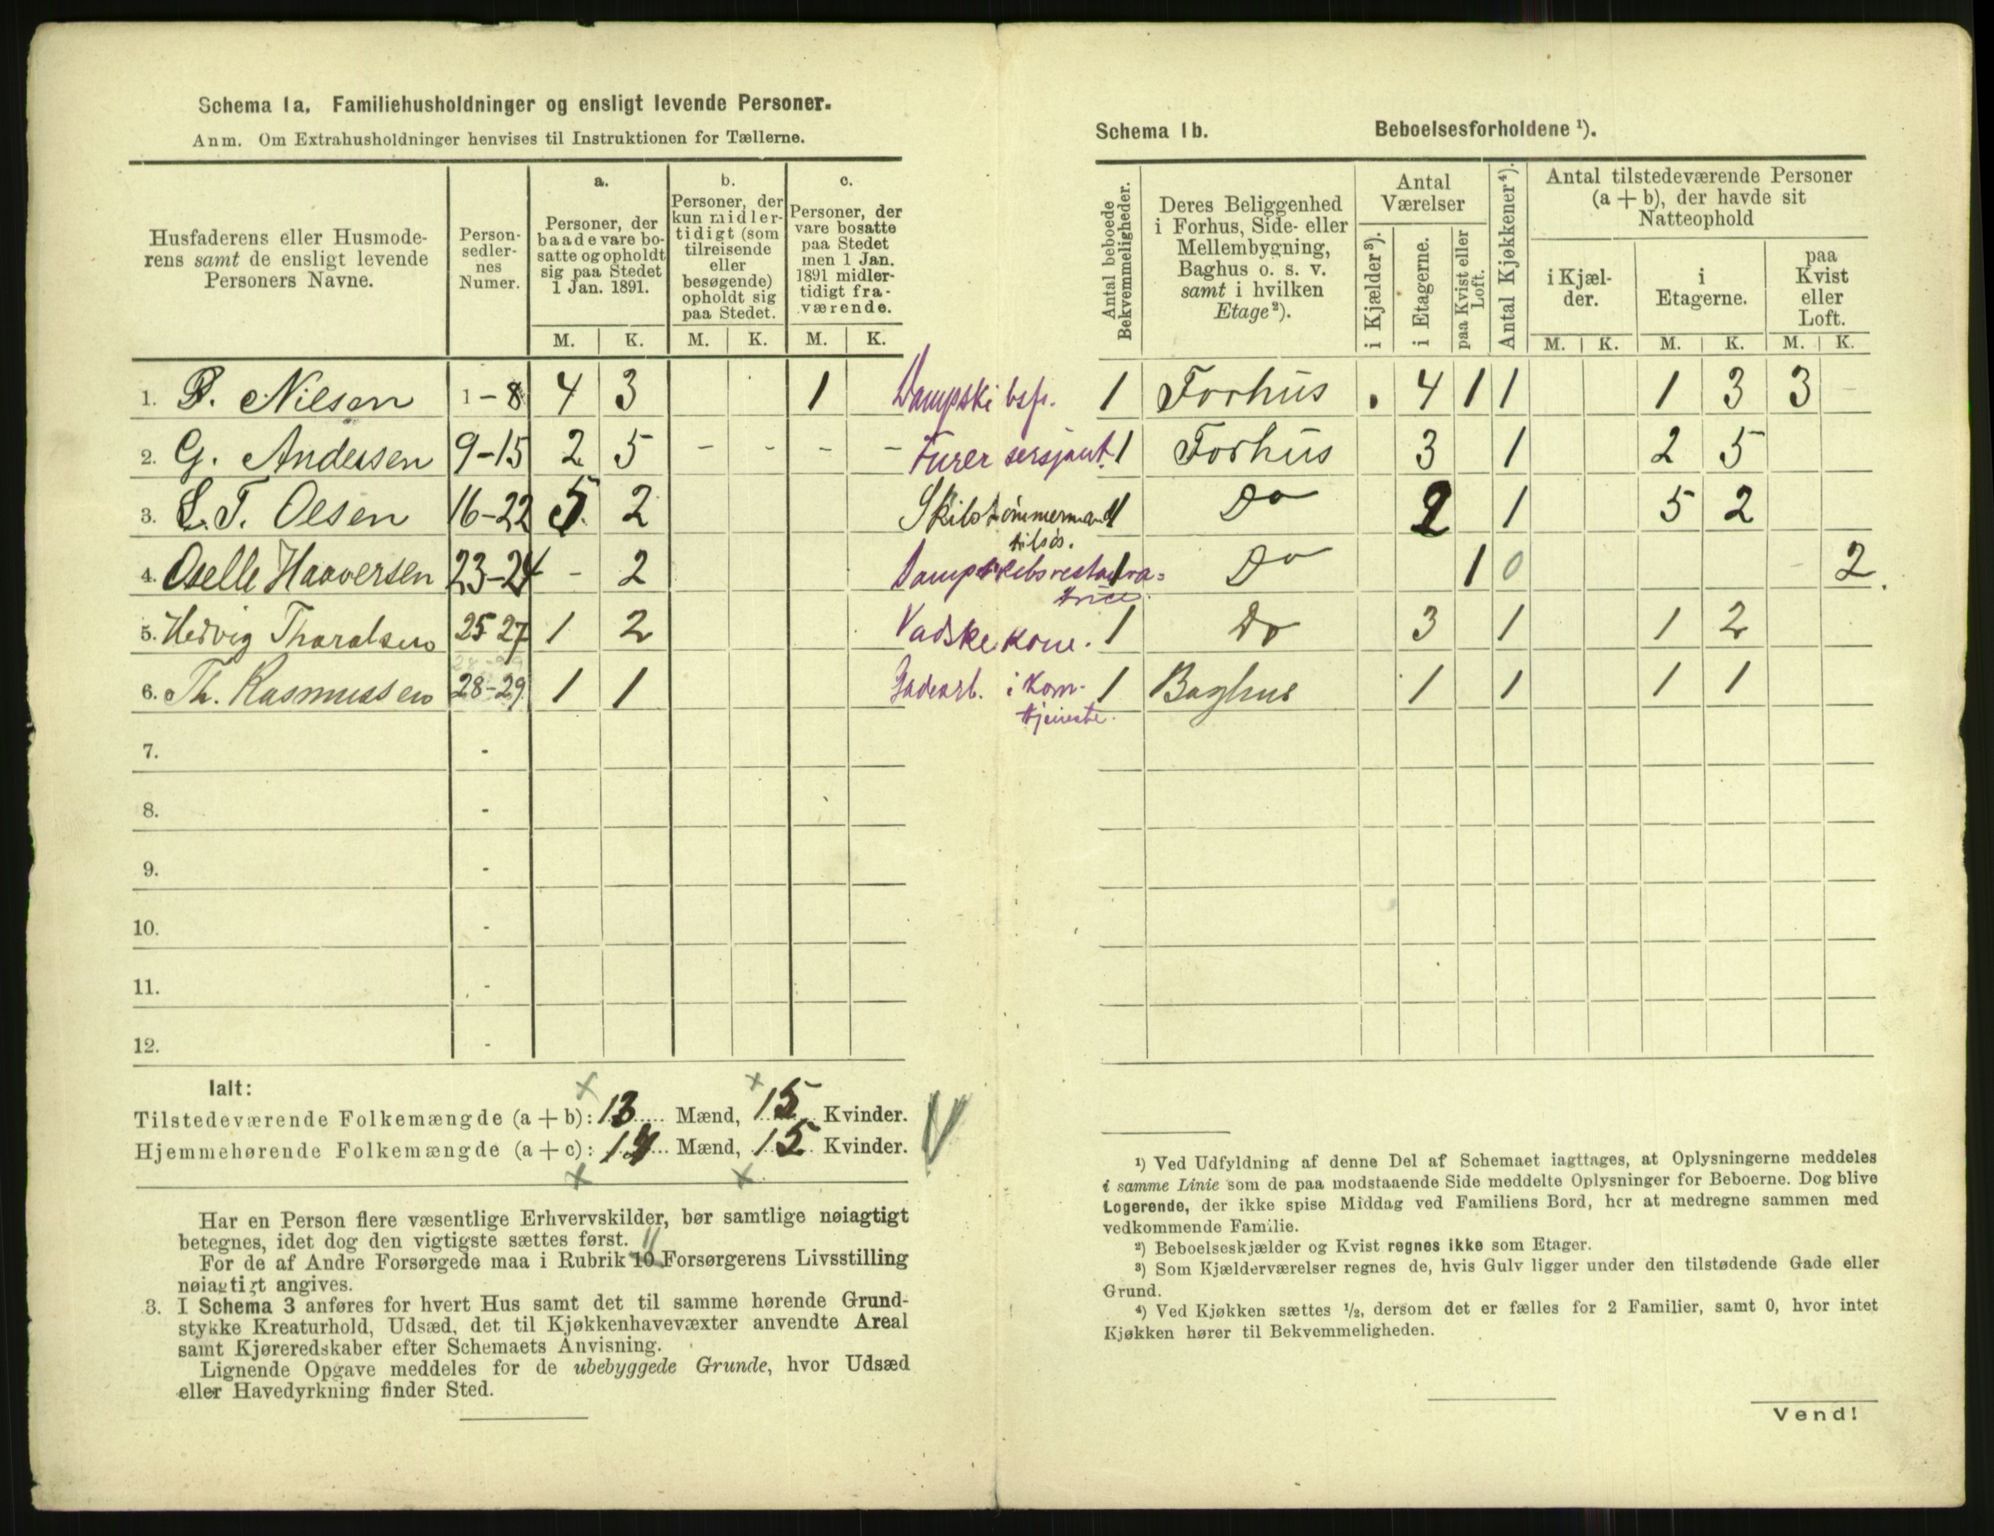 Schema 1a. Familiehusholdninger og ensligt levende Personer.
Anm. Om Extrahusholdninger henvises til Instruktionen for Tællerne.
Husfaderens eller Husmode-
rens samt de ensligt levende
Personers Navne.
Person-
sedler-
nes
Numer.
a.
Personer, der
baade vare bo-
satte og opholdt
sig paa Stedet
1 Jan. 1891.
b.
Personer, der
kun midler-
tidigt (som
tilreisende
eller
besøgende)
opholdt sig
paa Stedet.
c.
Personer, der
vare bosatte
paa Stedet
men 1 Jan.
1891 midler-
tidigt fra-
værende.
M. K. M. K. M. K.
1. P. Nilsen 1-8 4 3 1 Dampskibsf.
2. G. Andersen 9-15 2 5 - - - - Furer sersjant.
3. L. T. Olsen 16-22 5 2 Skibstømmermand
tilsøs.
4. Oselle Haaversen 23-24 - 2 Dampskibsrestaura=
trice.
5. Hedvig Tharalsen 25-27 1 2 Vadskekone.
6. Th. Rasmussen 28-29 1 1 Gadearb. i kom-
tjeneste.
7. -
8. -
9. -
10. -
11. -
12. -
Ialt:
Tilstedeværende Folkemængde (a + b): 13 Mænd, 15 Kvinder.
Hjemmehørende Folkemængde (a + c): 14 Mænd, 15 Kvinder.
Har en Person flere væsentlige Erhvervskilder, bør samtlige nøiagtigt
betegnes, idet dog den vigtigste sættes først.
11
For de af Andre Forsørgede maa i Rubrik 10 Forsørgerens Livsstilling
nøiagtigt angives.
3. I Schema 3 anføres for hvert Hus samt det til samme hørende Grund-
stykke Kreaturhold, Udsæd, det til Kjøkkenhavevæxter anvendte Areal
samt Kjøreredskaber efter Schemaets Anvisning.
Lignende Opgave meddeles for de ubebyggede Grunde, hvor Udsæd
eller Havedyrkning finder Sted.
Schema 1b. Beboelsesforholdene ¹).
Antal beboede
Bekvemmeligheder.
Deres Beliggenhed
i Forhus, Side- eller
Mellembygning,
Baghus o. s. v.
samt i hvilken
Etage ²).
Antal
Værelser
i Kjælder ³).
i Etagerne.
paa Kvist eller
Loft.
Antal Kjøkkener ⁴).
Antal tilstedeværende Personer
(a + b), der havde sit
Natteophold
i Kjæl-
der.
i
Etagerne.
paa
Kvist
eller
Loft.
M. K. M. K. M. K.
1 Forhus . 4 1 1 1 3 3 -
1 Forhus 3 1 2 5
1 Do 2 1 5 2
1 Do 1 0 - 2.
1 Do 3 1 1 2
1 Baghus 1 1 1 1
¹) Ved Udfyldning af denne Del af Schemaet iagttages, at Oplysningerne meddeles
i samme Linie som de paa modstaaende Side meddelte Oplysninger for Beboerne. Dog blive
Logerende, der ikke spise Middag ved Familiens Bord, her at medregne sammen med
vedkommende Familie.
²) Beboelseskjælder og Kvist regnes ikke som Etager.
³) Som Kjælderværelser regnes de, hvis Gulv ligger under den tilstødende Gade eller
Grund.
⁴) Ved Kjøkken sættes ½, dersom det er fælles for 2 Familier, samt 0, hvor intet
Kjøkken hører til Bekvemmeligheden.
Vend!